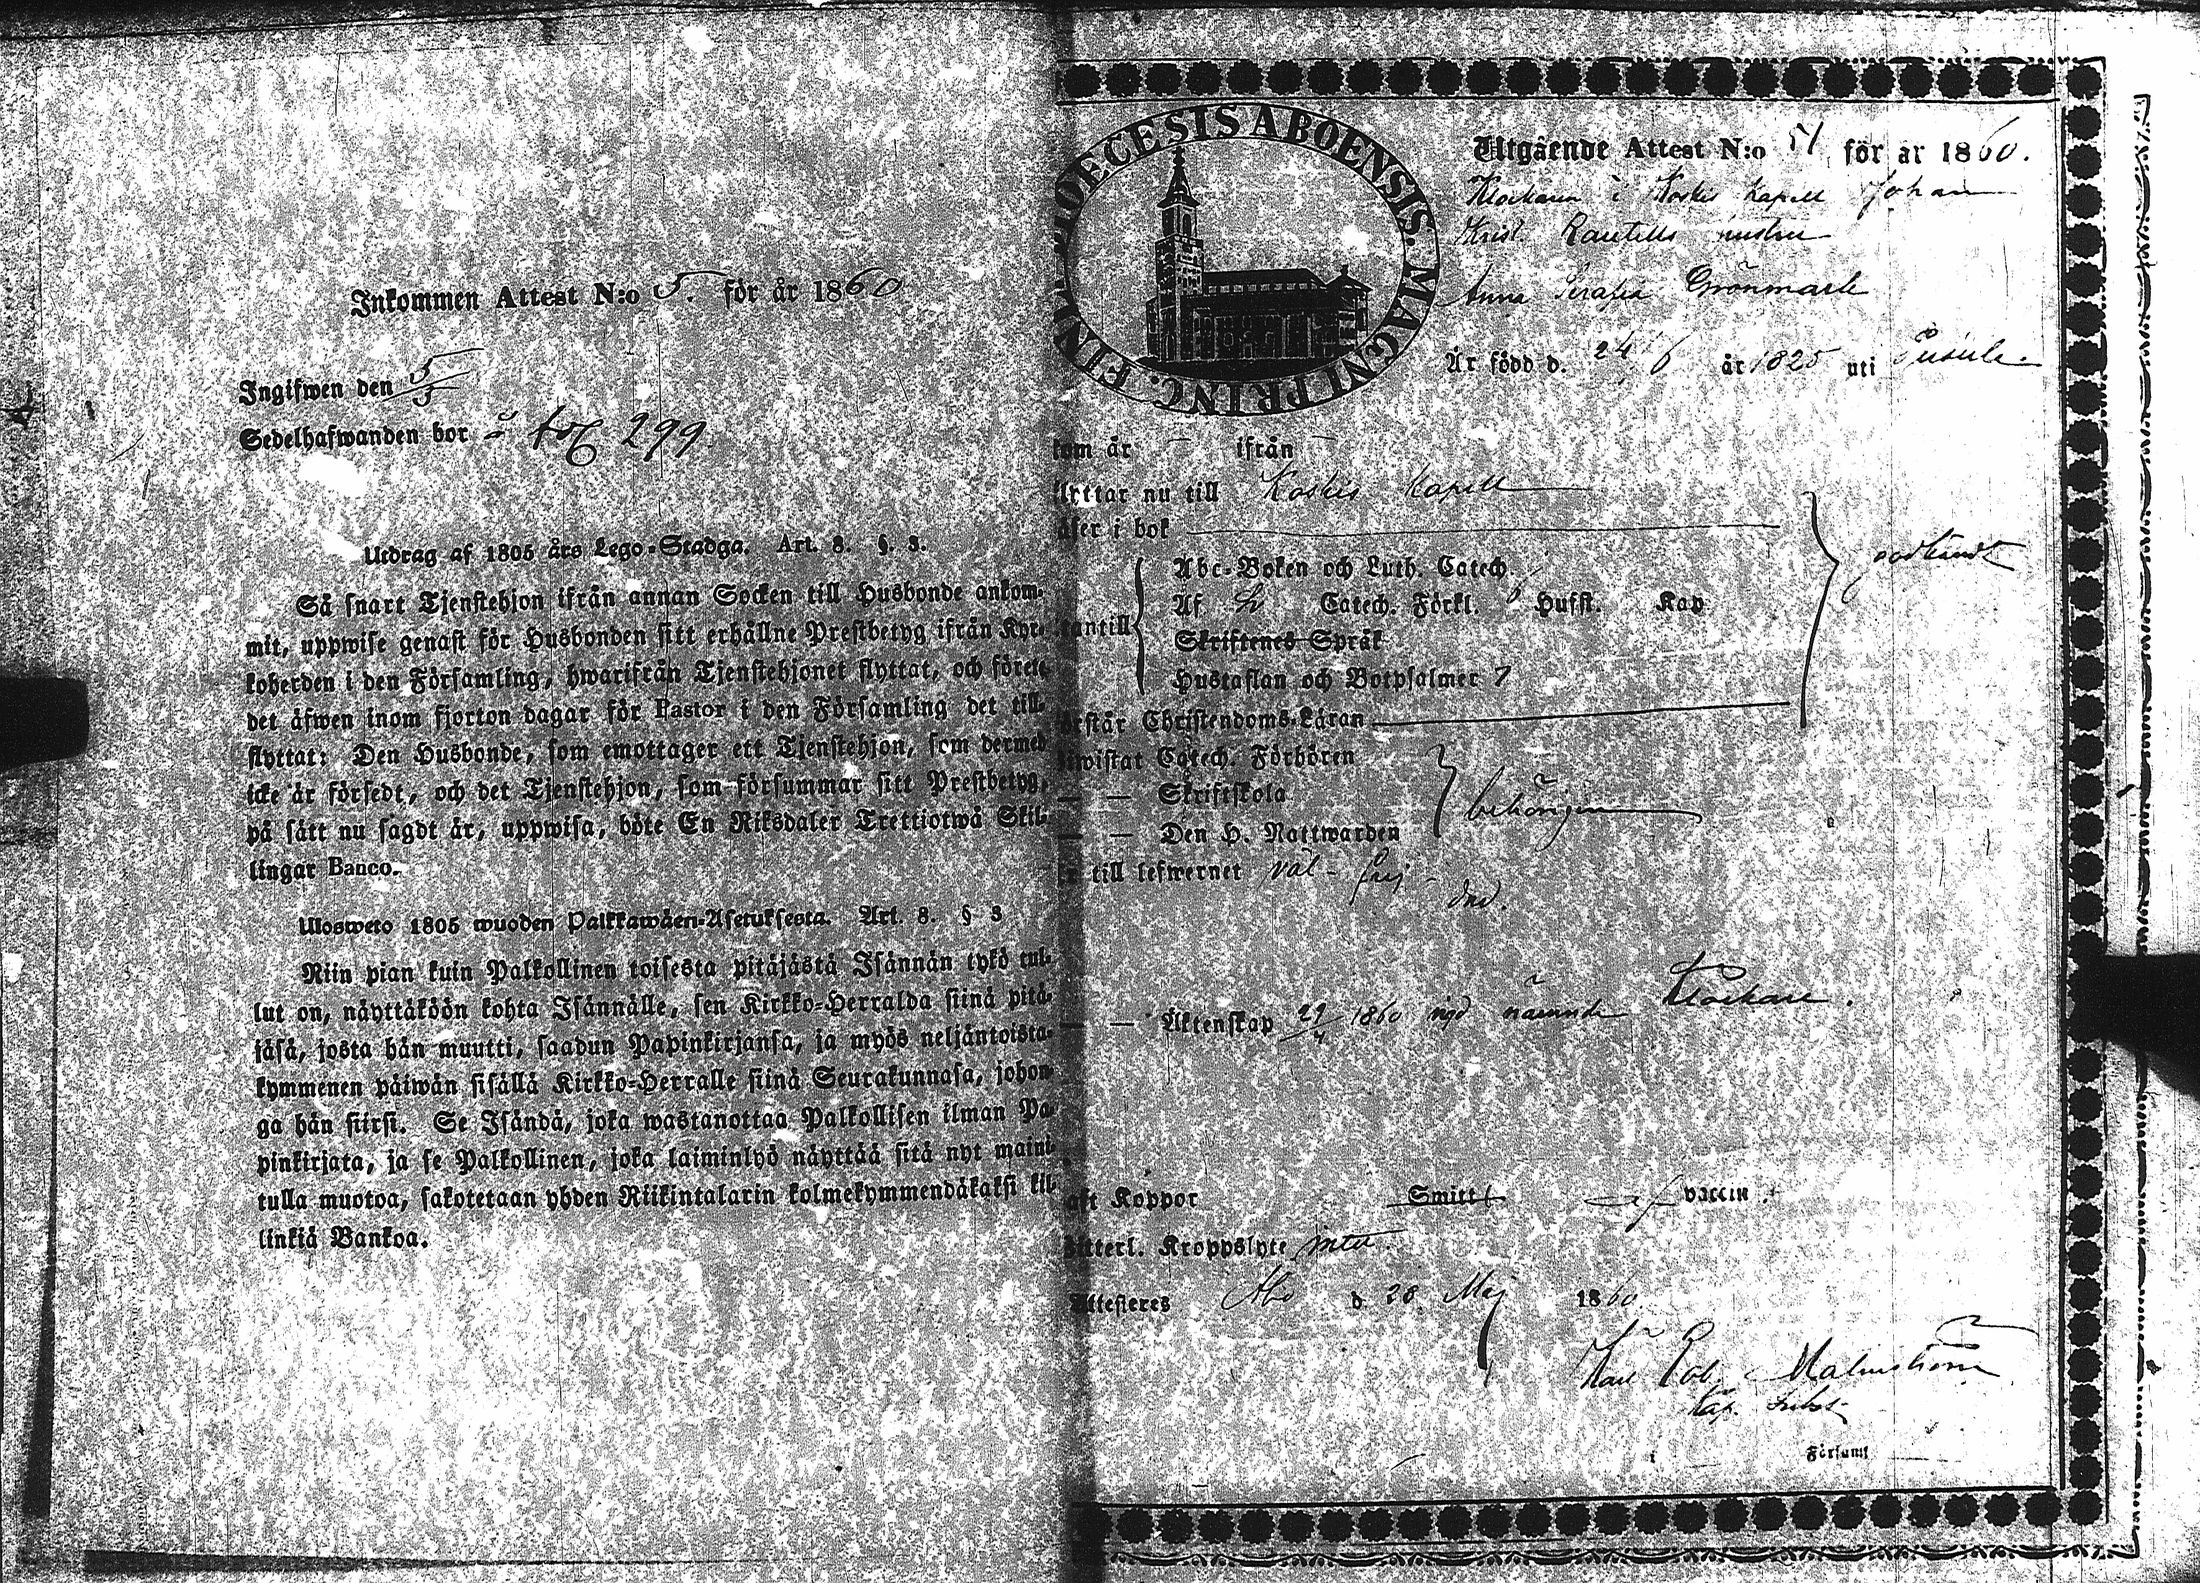 Inkommen Attest N:o 5. för år 1860
Ingifwen den 5/3
Sedelhafwanden bor å tog 299.
Utdrag af 1805 års Lego-Stadga. Art. 8. §. 3.
Så snart Tjenstehjon ifrån annan Socken till Husbonde ankom-
mit, uppwise genast för Husbonden sitt erhållne Prestbetyg ifrån Kyr-
koherden i den Församling, hwarifrån Tjenstehjonet flyttat, och förete
det äfwen inom fjorton dagar för Pastor i den Församling det till-
flyttat: Den Husbonde, som emottager ett Tjenstehjon, som dermed
icke är försedt, och det Tjenstehjon, som försummar sitt Prestbetyg,
på sätt nu sagdt är, uppwisa, böte En Riksdaler Trettiotwå Skil-
lingar Banco.
Ulosweto 1805 wuoden Palkkawäen-Asetuksesta. Art. 8. § 3
Niin pian kuin Palkollinen toisesta pitäjästä Isännän tykö tul-
lut on, näyttäköön kohta Isännälle, sen Kirkko-Herralda siinä pitä-
jäsä, josta hän muutti, saadun Papinkirjansa, ja myös neljäntoista-
kymmenen päiwän sisällä Kirkko-Herralle siinä Seurakunnasa, johon-
ga hän siirsi. Se Isändä, joka wastanottaa Palkollisen ilman Pa-
pinkirjata, ja se Palkollinen, joka laiminlyö näyttää sitä nyt maini-
tulla muotoa, sakotetaan yhden Riikintalarin kolmekymmendäkaksi kil-
linkiä Bankoa.
DIOECESIS ABOENSIS. MAGNI PRINC. FINL.
Utgående Attest N:o 51 för år 1860.
Klockaren i Koskis kapell Johan
Krist. Rautells hustru
Anna Serafia Grönmark
Är född d. 24/6 år 1825 uti Pusula.
kom år — ifrån —
flyttar nu till Koskis Kapell
läser i bok
Abc-Boken och Luth. Catech.
Af Catech. Förkl. Husst. Kap
utantill
Skriftenes Språk
Hustaflan och Botpsalmer 7
godkändt
förstår Christendoms-Läran
bewistat Catech. Förhören
— — Skriftskola
— — Den H. Nattwarden
behörigen
till lefwernet väl-frej-
dad.
— — Äktenskap 29/4 1860 med nämnde Klockare.
haft Koppor Smitt af vaccin
Witterl. Kroppslyte intet
Attesteres Åbo d 28 Maj 1860
Karl Rob. Malmström
Kap. Subst.
i Församl